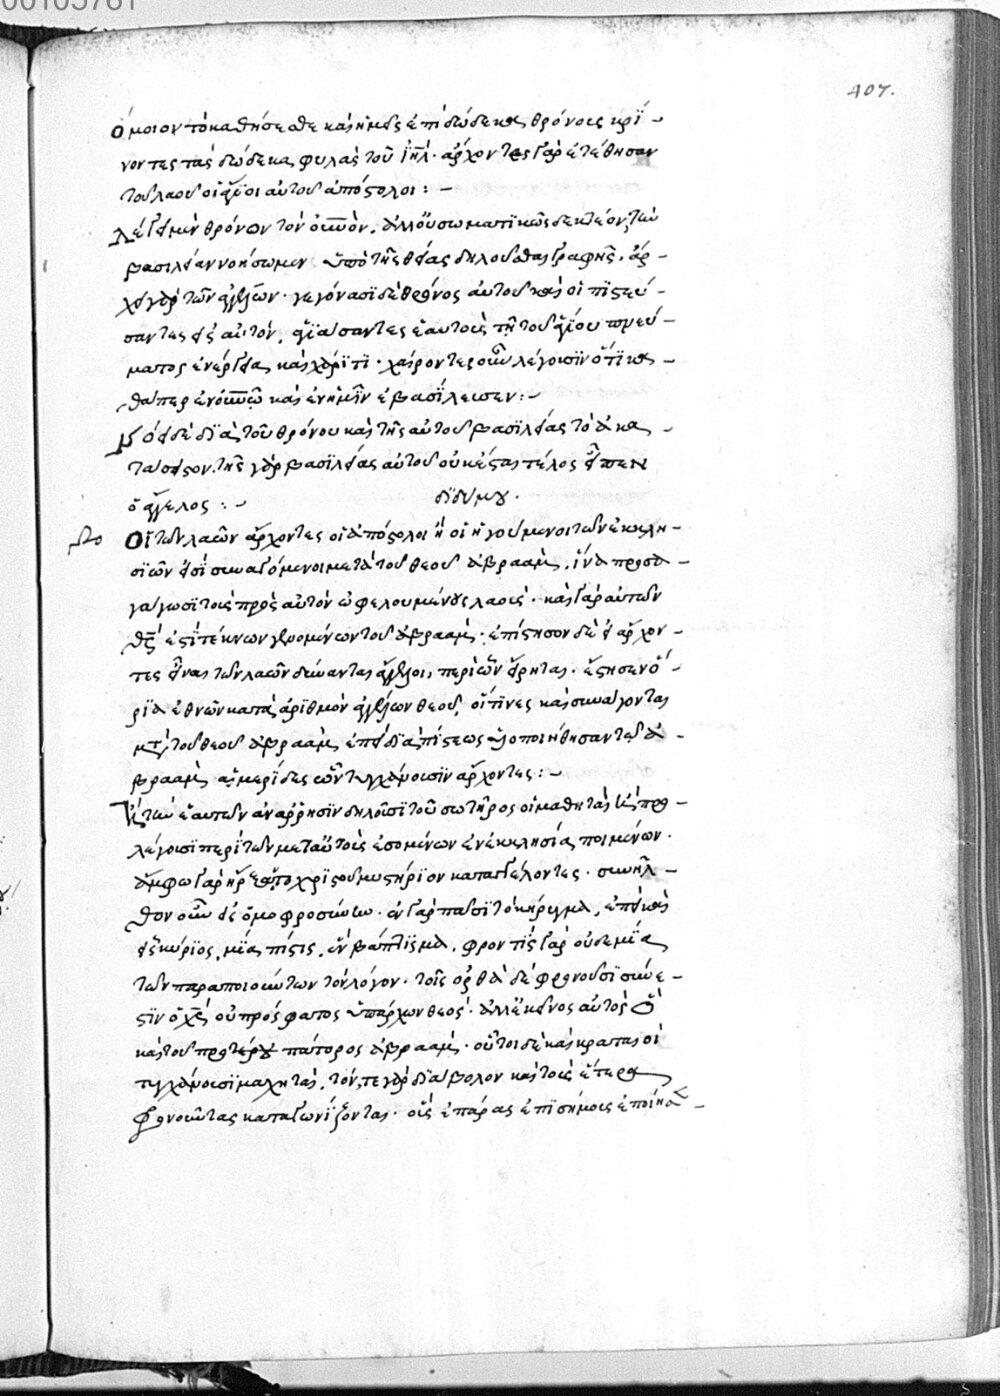 407.
ὅμοιον τὸ καθήσεσθε καὶ ὑμεῖς ἐπὶ δώδεκα θρόνους κρί-
νοντες τὰς δώδεκα φυλὰς τοῦ ἰηλ. ἄρχοντες γὰρ ἐτέθησαν
τοῦ λαοῦ οἱ ἅγιοι αὐτοῦ ἀπόστολοι: -
Λέγομεν θρόνον τὸν οὐνὸν. ἀλλ' οὐ σωματικῶς δεκτέον, τὴν
βασιλείαν νοήσωμεν ὑπὸ τῆς θείας δηλοῦσθαι γραφῆς. ἄρ-
χει γὰρ τῶν ἀγγέλων. γεγόνασι δὲ θρόνος αὐτοῦ καὶ οἱ πιστεύ-
σαντες εἰς αὐτὸν, ἁγιάσαντες ἑαυτοὺς τῇ τοῦ ἁγίου πνεύ-
ματος ἐνεργείᾳ καὶ χάριτι. χαίροντες οὖν λέγουσιν ὅτι κα-
θάπερ ἐν οὐνῷ καὶ ἐν ἡμῖν ἐβασίλευσεν: -
δὲ διὰ τοῦ θρόνου καὶ τῆς αὐτοῦ βασιλείας τὸ ἀκα-
τάσειστον. τῆς γὰρ βασιλείας αὐτοῦ οὐκ ἔσται τέλος εἶπεν
ὁ ἄγγελος: -
διδύμου.
Οἱ τῶν λαῶν ἄρχοντες οἱ ἀπόστολοι ἢ οἱ ἡγούμενοι τῶν ἐκκλη-
σιῶν εἰσὶ συναγόμενοι μετὰ τοῦ θεοῦ ἀβραὰμ, ἵνα προσα-
γάγωσι τοῖς πρὸς αὐτὸν ὠφελουμένους λαοῖς. καὶ γὰρ αὐτῶν
θς ἐστὶ τέκνων γενομένων τοῦ ἀβραάμ. ἐπίστησον δὲ εἰ ἄρχον-
τες εἶναι τῶν λαῶν δύνανται ἄγγελοι, περὶ ὧν εἴρηται. ἔστησεν ὅ-
ρια ἐθνῶν κατὰ ἀριθμὸν ἀγγέλων θεοῦ, οἵτινες καὶ συνάγονται
μετὰ τοῦ θεοῦ ἀβραὰμ ἐπεὶ διὰ πίστεως υἱοποιήθησαν τῷ ἀ-
βραὰμ αἱ μερίδες ὧν τυγχάνουσιν ἄρχοντες: -
τὴν ἑαυτῶν ἀνάρρησιν δηλοῦσι τοῦ σωτῆρος οἱ μαθηταὶ προ-
λέγουσι περὶ τῶν μετ' αὐτοὺς ἐσομένων ἐν ἐκκλησίᾳ ποιμένων.
ἄμφω γὰρ χριστοῦ μυστήριον καταγγέλοντες. συνῆλ-
θον οὖν εἰς ὁμοφροσύνην. ἓν γὰρ πᾶσι τὸ κήρυγμα, ἐπεὶ καὶ
εἷς κύριος, μία πίστις, ἓν βάπτισμα. φροντὶς γὰρ οὐδεμία
τῶν παραποιούντων τὸν λόγον. τοῖς ὀρθὰ δὲ φρονοῦσι σύνε-
στιν ὁ χς οὐ πρόσφατος ὑπάρχων θεός. ἀλλ' ἐκεῖνος αὐτὸς ὁ
καὶ τοῦ προτέρου πάτορος ἀβραάμ. οὗτοι δὲ καὶ κραταιοὶ
τυγχάνουσι μαχηταὶ, τόν, τε γὰρ διάβολον καὶ τοὺς ἕτερα
φρονοῦντας καταγωνίζονται. οἷς ἐπάρας ἐπισήμους ἐποίησ-